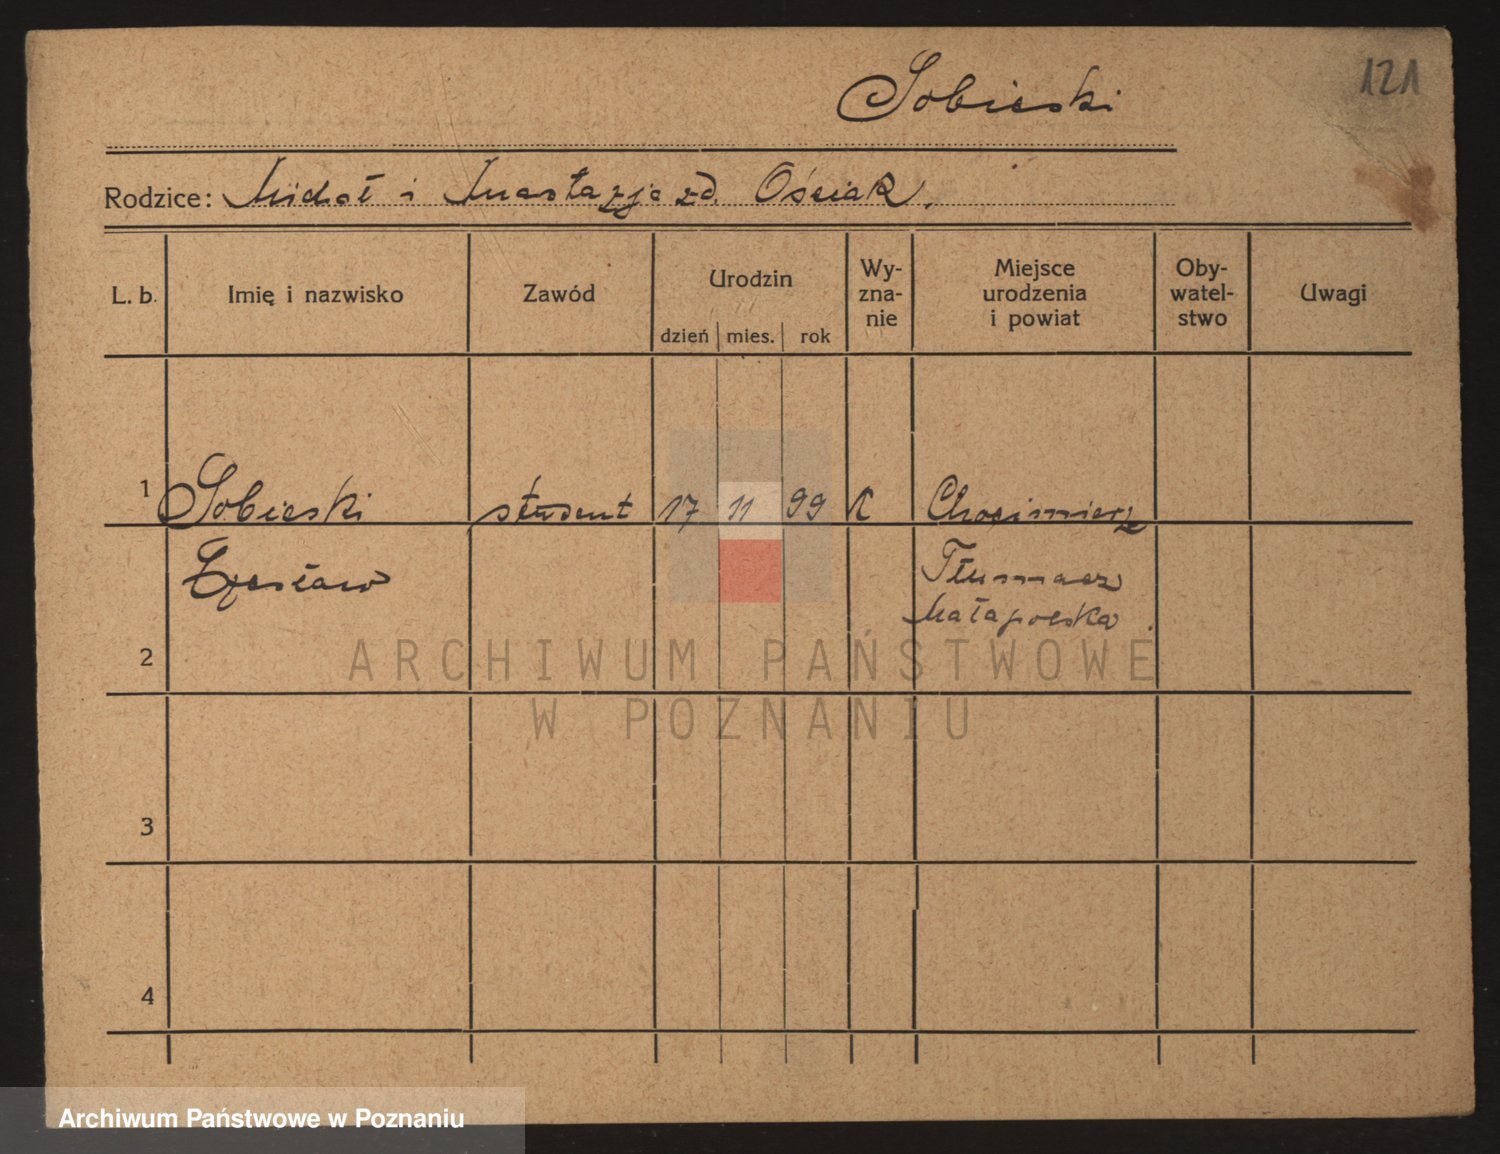 121
Sobieski
Rodzice: Michał i Anastazja zd. Ościak.
L. b. Imię i nazwisko Zawód Urodzin dzień mies. rok Wy- zna- nie Miejsce urodzenia i powiat Oby- watel- stwo Uwagi
1 Sobieski student 17 11 99 K Chocimierz
Czesław Tłumacz
Małapolska.
2
3
4
ARCHIWUM PAŃSTWOWE
W POZNANIU
Archiwum Państwowe w Poznaniu